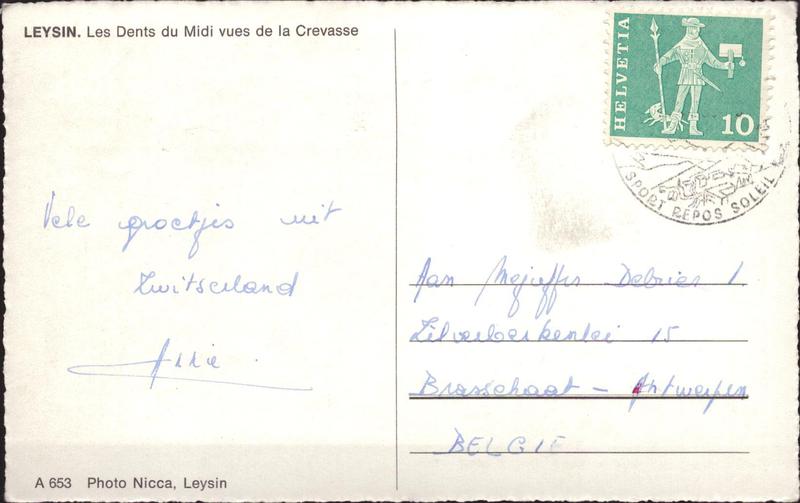 LEYSIN. Les Dents du Midi vues de la Crevasse
HELVETIA
10
SPORT REPOS SOLEIL
Vele groetjes uit
Zwitserland
Aan Mejuffr Debries
Zilverberkenlei 15
Brasschaat - Antwerpen
BELGIE
A 653 Photo Nicca, Leysin